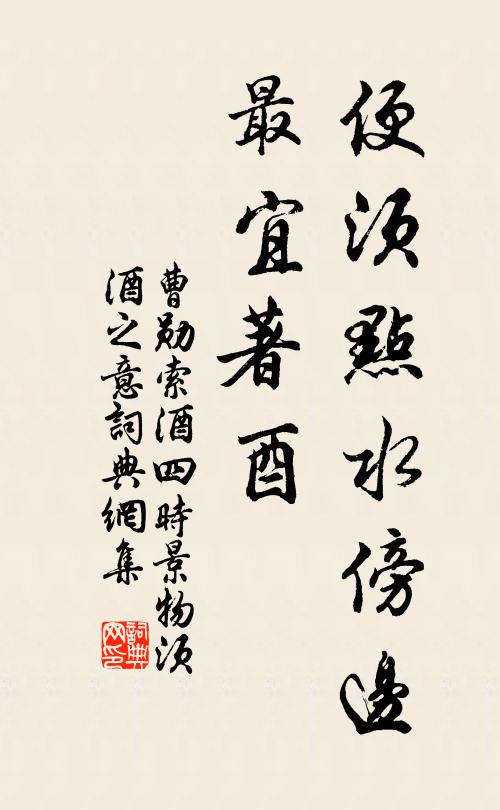 便須點水傍邊
最宜著酉
曹勛索酒四時景物須
酒之意詞典網集
詞典
网印